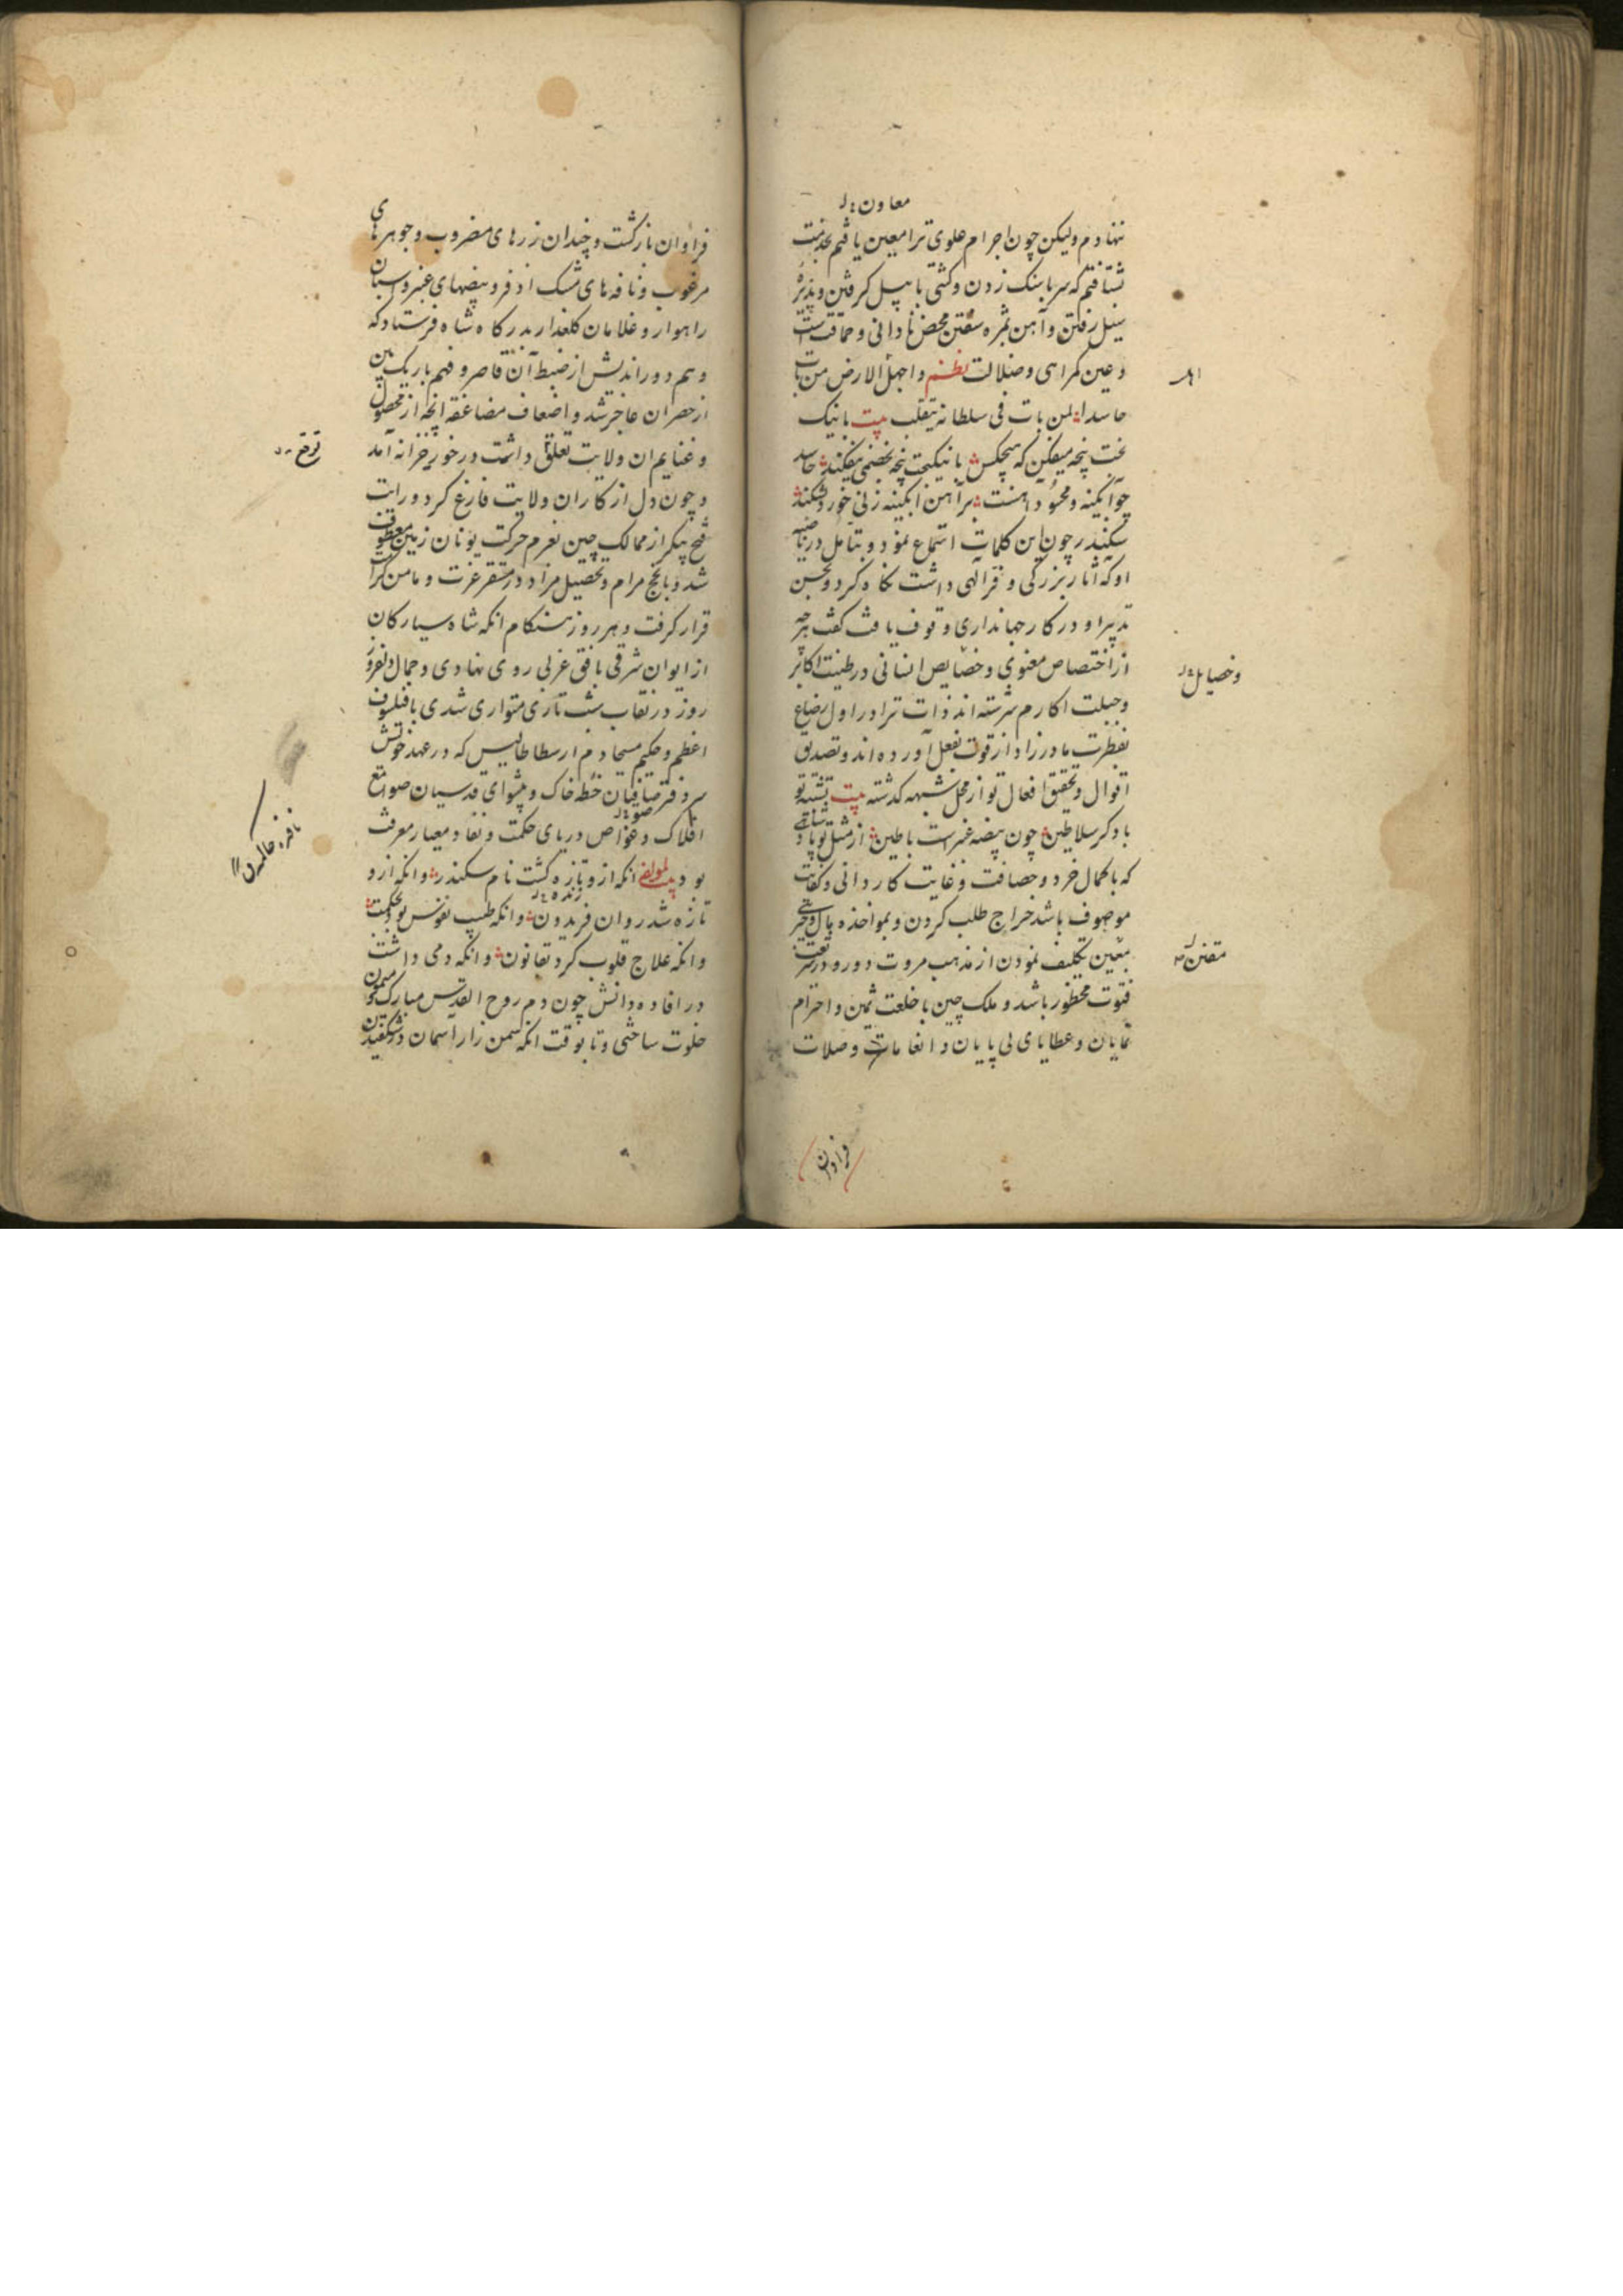 معاون
ننهادم ولیکن چون اجرام علوی ترا معین یافتم بخدمت
شتافتم که سر با سنک زدن و کشتی با پیل کرفتن و پذیره
سیل رفتن و آهن بمژه سفتن محض نادانی و حماقت است
و عین کمراهی و ضلالت نظم و اجهل الارض من بات
حاسدا لمن بات فی سلطانه یتقلب بیت با نیک
بخت پنجه میفکن که هیچکس با نیکبخت پنجه بخصمی نیفکند حاسد
چو آبکینه و محسود آهنست بر آهن ابکینه زنی خورد بشکند
سکندر چون این کلمات استماع نمود و بتامل در ناصیه
او که آثار بزرکی و فر الهی داشت نکاه کرد و بحسن
تدبیر او در کار جهانداری وقوف یافت کفت هرچه
از اختصاص معنوی و خصایص انسانی در طینت اکابر
وخصایل
و جبلت اکارم سرشته اند ذات ترا در اول رضاع
بفطرت مادرزاد از قوت بفعل آورده اند و تصدیق
اقوال و تحقیق افعال تو از محل شبهه کذشته بیت
باد کر سلاطین چون بیضه عنبرست با طین از مثل تو پادشاهی
که بکمال خرد و حصافت و غایت کاردانی و کفایت
موصوف باشد خراج طلب کردن و بمواخذه مال و خرجی
معین تکلیف نمودن از مذهب مروت دور و در شریعت
فتوت محظور باشد و ملک چین با خلعت ثمین و احترام
نمایان و عطایای بی پایان و انعامات و صلات
فراوان
فراوان بازکشت و چندان زرهای مضروب و جوهرهای
مرغوب و نافه های مشک اذفر و بیضهای عنبر و اسبان
راهوار و غلامان کلعذار بدرکاه شاه فرستاد که
وهم دوراندیش از ضبط آن قاصر و فهم باریک بین
از حصر ان عاجز شد و اضعاف مضاعفه انچه از محصول
و غنایم ان ولایت تعلق داشت در خور خزانه آمد
و چون دل از کار ان ولایت فارغ کرد و رایت
فتح پیکر از ممالک چین بعزم حرکت یونان زمین معطوف
شد و بانجح مرام و تحصیل مراد در مستقر عزت و مامن کرامت
قرار کرفت و هر روز هنکام انکه شاه سیارکان
از ایوان شرقی بافق غربی روی نهادی و جمال دلفروز
روز در نقاب شب تاری متواری شدی با فیلسوف
اعظم و حکیم مسیحا دم ارسطاطالیس که در عهد خویش
سردفتر صافیان خطه خاک و پیشوای قدسیان صوامع
افلاک و غواص دریای حکمت و نقاد معیار معرفت
بود لمولفه انکه ازو تازه کشت نام سکندر وانکه ازو
زنده
تازه شد روان فریدون وانکه طبیب نفوس بود بحکمت
وانکه علاج قلوب کرد بقانون وانکه دمی داشت
در افاده دانش چون دم روح القدس مبارک و میمون
خلوت ساختی و تا بوقت انکه سمن زار آسمان